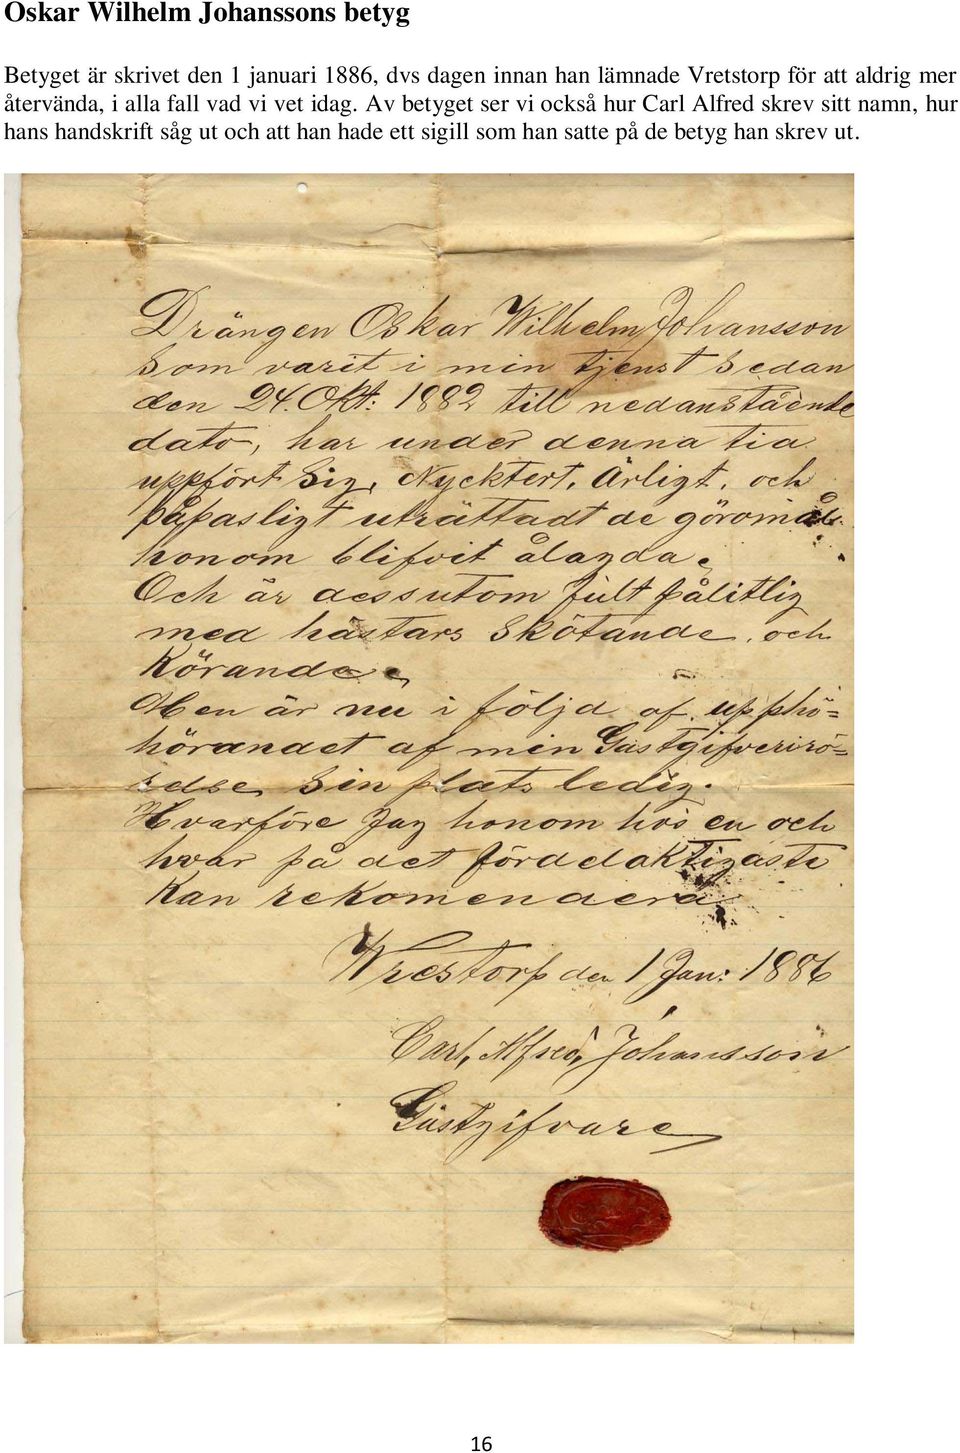 Oskar Wilhelm Johanssons betyg
Betyget är skrivet den 1 januari 1886, dvs dagen innan han lämnade Vretstorp för att aldrig mer
återvända, i alla fall vad vi vet idag. Av betyget ser vi också hur Carl Alfred skrev sitt namn, hur
hans handskrift såg ut och att han hade ett sigill som han satte på de betyg han skrev ut.
Drängen Oskar Wilhelm Johansson
Som varit i min tjenst Sedan
den 24. Okt: 1882 till nedanstående
dato, har under denna tid
uppfört Sig, Nycktert, Ärligt, och
påpasligt uträttadt de göromål
honom blifvit ålagda.
Och är dessutom fult pålitlig
med hästars Skötande, och
Körande.
Men är nu i följd af upphö=
hörandet af min Gästgifverirö=
relse, Sin plats ledig.
Hvarföre Jag honom hos en och
hvar på det fördelaktigaste
Kan rekomendera
Wrestorp den 1 Jan: 1886
Carl, Alfred, Johansson
Gästgifvare
16